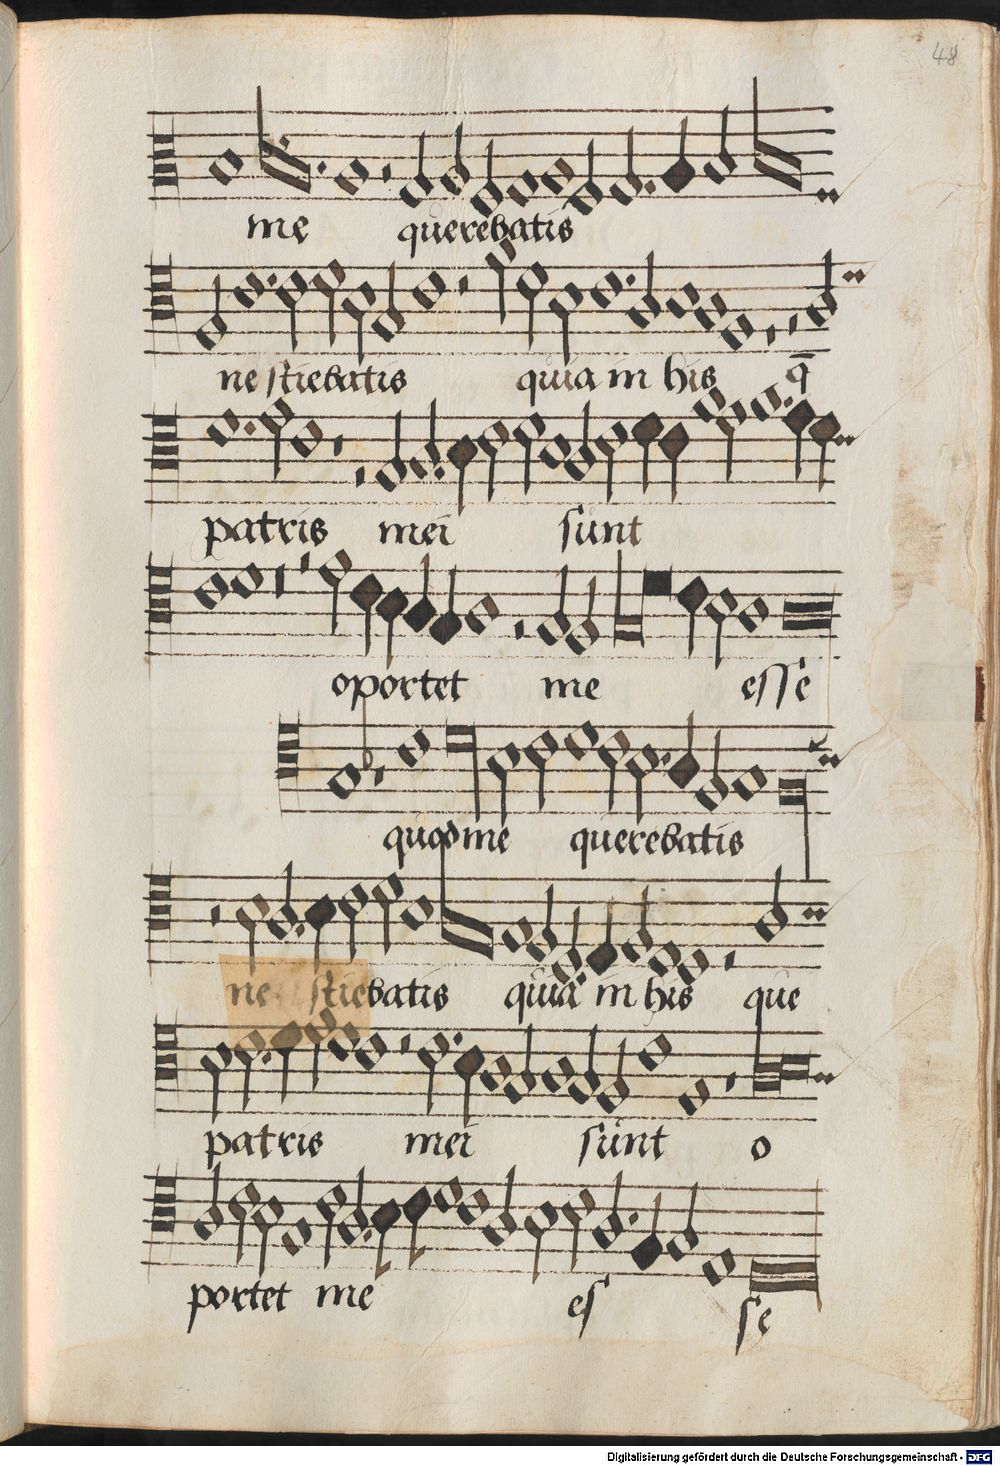 48
me querebatis
nestiebatis quia in his q̄
patris mei sunt
oportet me esse
quod me querebatis
ne stiebatis quia in his que
patris mei sunt o
portet me es se
Digitalisierung gefördert durch die Deutsche Forschungsgemeinschaft - DFG